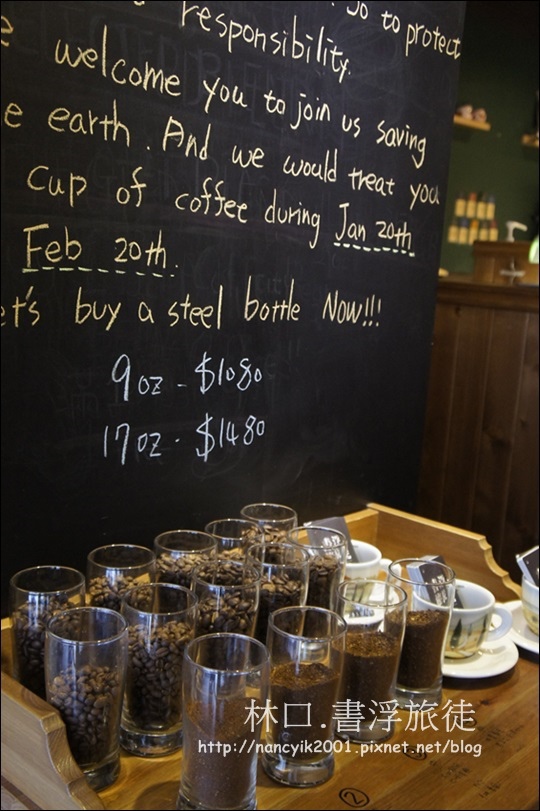 responsibility. Go to protect
welcome you to join us saving
e earth. And we would treat you
cup of coffee during Jan 20th
Feb 20th.
et's buy a steel bottle Now!!!
9oz - $1080
17oz - $1480
林口.書浮旅徒
http://nancyik2001.pixnet.net/blog
②